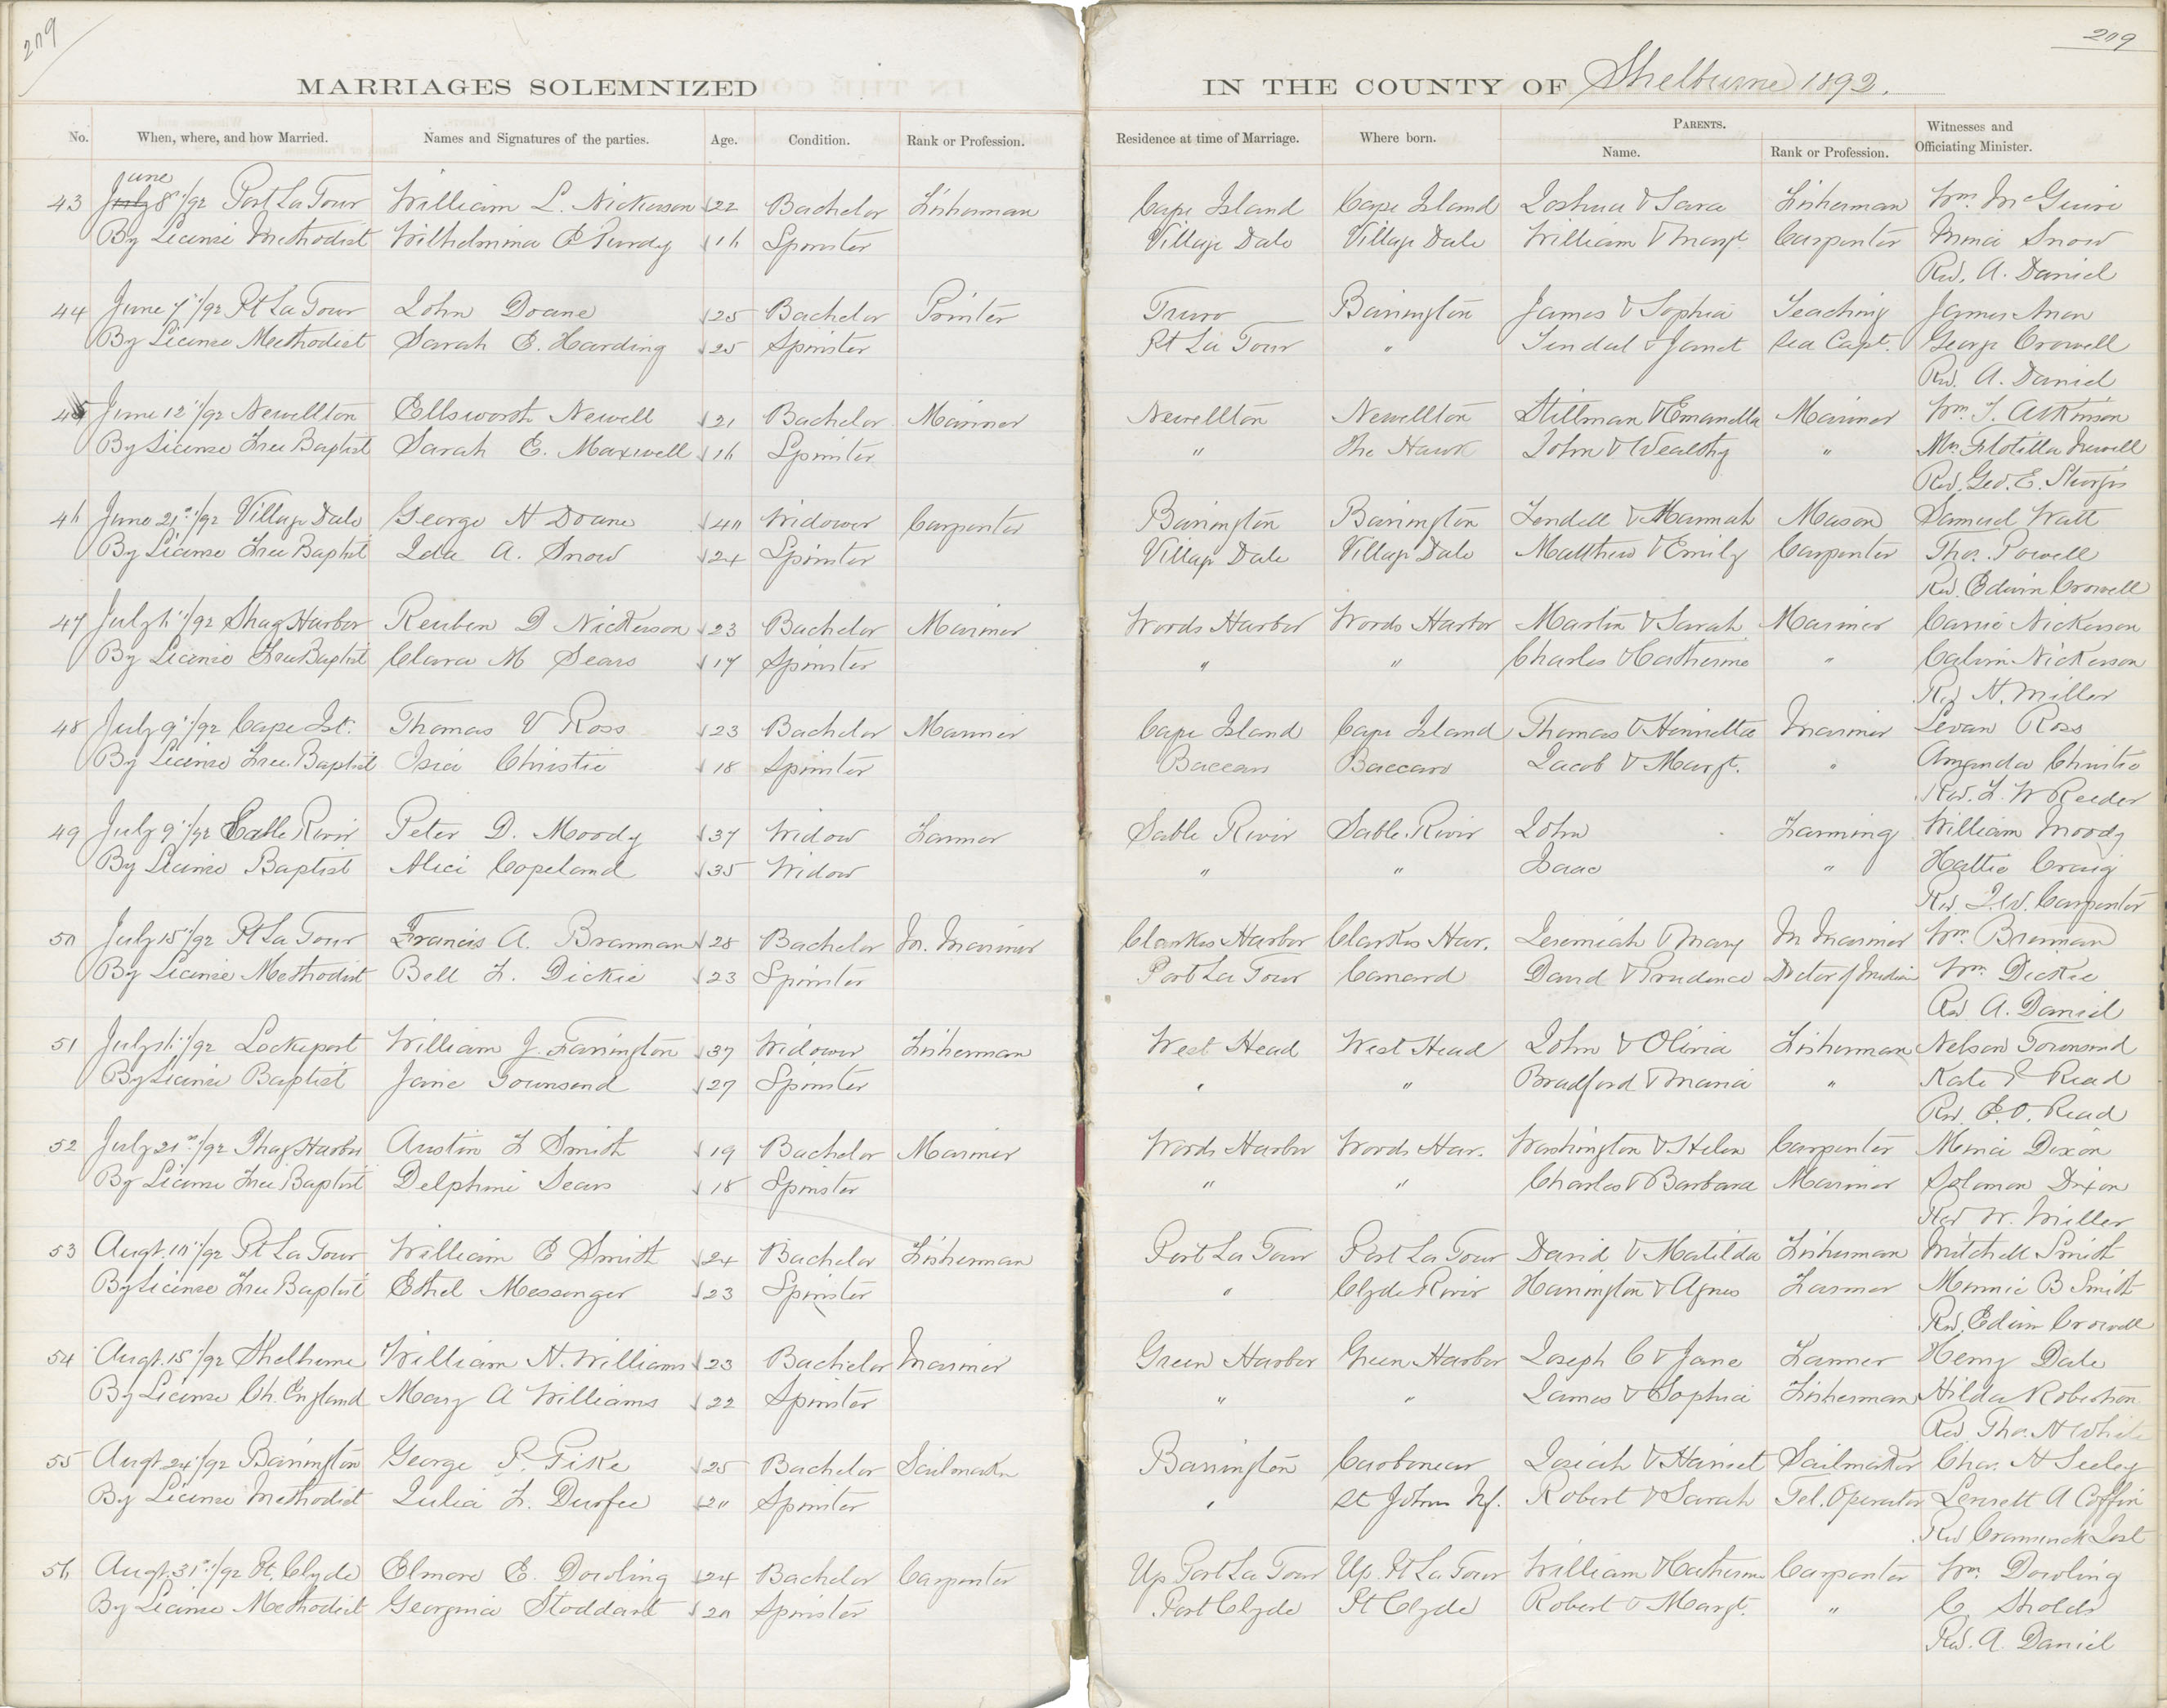 209
209
MARRIAGES SOLEMNIZED IN THE COUNTY OF Shelburne 1892.
No. When, where, and how Married. Names and Signatures of the parties. Age. Condition. Rank or Profession. Residence at time of Marriage. Where born. PARENTS. Witnesses and Officiating Minister.
Name. Rank or Profession.
June
43 July 8"/92 Port La Tour William L. Nickerson 22 Bachelor Fisherman Cape Island Cape Island Joshua & Sara Fisherman Wm. McGuire
By License Methodist Wilhelmina C Purdy 16 Spinster Village Dale Village Dale William & Margt. Carpenter Mina Snow
Rev. A. Daniel
44 June 7"/92 Pt La Tour John Doane 25 Bachelor Printer Truro Barrington James & Sophia Teaching James
By License Methodist Sarah E. Harding 25 Spinster Pt La Tour " Tendal & Janet Sea Capt. George Crowell
Rev. A. Daniel
45 June 12"/92 Newellton Ellsworth Newell 21 Bachelor Mariner Newellton Newellton Stillman & Emanella Mariner Wm. T. Atkinson
By License Free Baptist Sarah E. Maxwell 16 Spinster " The Hawk John & Wealthy " Mrs. Flotilla Newell
Rev. Geo. E. Sturgis
46 June 21st/92 Village Dale George H Doane 40 Widower Carpenter Barrington Barrington Lendell & Hannah Mason Samuel Watt
By License Free Baptist Ida A. Snow 24 Spinster Village Dale Village Dale Matthew & Emily Carpenter Thos. Powell
Rev. Edwin Crowell
47 July 6"/92 Shag Harbor Reuben D Nickerson 23 Bachelor Mariner Woods Harbor Woods Harbor Martin & Sarah Mariner Carrie Nickerson
By License Free Baptist Clara M Sears 17 Spinster " " Charles & Catherine " Calvin Nickerson
Rev W. Miller
48 July 9"/92 Cape Isl. Thomas V Ross 23 Bachelor Mariner Cape Island Cape Island Thomas & Henrietta Mariner Levan Ross
By License Free Baptist Isia Christie 18 Spinster Baccaro Baccaro Jacob & Margt. " Amanda Christie
Rev. F. W Reeder
49 July 9"/92 Sable River Peter D. Moody 37 Widow Farmer Sable River Sable River John Farming William Moody
By License Baptist Alice Copeland 35 Widow " " Isaac " Hattie Craig
Rev I. W. Carpenter
50 July 15"/92 Pt La Tour Francis A. Brannan 28 Bachelor M. Mariner Clarkes Harbor Clarkes Har. Jeremiah & Mary M Mariner Wm. Brennan
By License Methodist Bell L. Dickie 23 Spinster Port La Tour Canard David & Prudence Doctor of Medicin Wm. Dickie
Rev A. Daniel
51 July 16"/92 Lockeport William J. Farrington 37 Widower Fisherman West Head West Head John & Olivia Fisherman Nelson Townsend
By License Baptist Jane Townsend 27 Spinster " " Bradford & Maria " Kate Read
Rev E. O. Read
52 July 21st/92 Shag Harbor Austin L Smith 19 Bachelor Mariner Woods Harbor Woods Har. Washington & Helen Carpenter Mina Dixon
By License Free Baptist Delphine Sears 18 Spinster " " Charles & Barbara Mariner Solomon Dixon
Rev W. Miller
53 Augt. 10"/92 Pt La Tour William B Smith 24 Bachelor Fisherman Port La Tour Port La Tour David & Matilda Fisherman Mitchell Smith
By License Free Baptist Ethel Messenger 23 Spinster " Clyde River Harrington & Agnes Farmer Minnie B Smith
Rev. Edwin Crowell
54 Augt. 15"/92 Shelburne William H. Williams 23 Bachelor Mariner Green Harbor Green Harbor Joseph C & Jane Farmer Henry Dale
By License Ch. England Mary A Williams 22 Spinster " " James & Sophia Fisherman Hilda Robertson
Rev. Tho. H White
55 Augt 24"/92 Barrington George P. Pike 25 Bachelor Sailmaker Barrington Carbonear Isaiah & Harriet Sailmaker Chas. H Seeley
By License Methodist Julia F. Durfee 20 Spinster " St Johns Nf. Robert & Sarah Tel. Operator A Coffin
Rev
56 Augt. 31st/92 Pt. Clyde Elmore E. Dowling 24 Bachelor Carpenter Up Port La Tour Up. Pt La Tour William & Catherine Carpenter Wm. Dowling
By License Methodist Georgina Stoddart 20 Spinster Port Clyde Pt Clyde Robert & Margt. " C. Sholds
Rev. A. Daniel